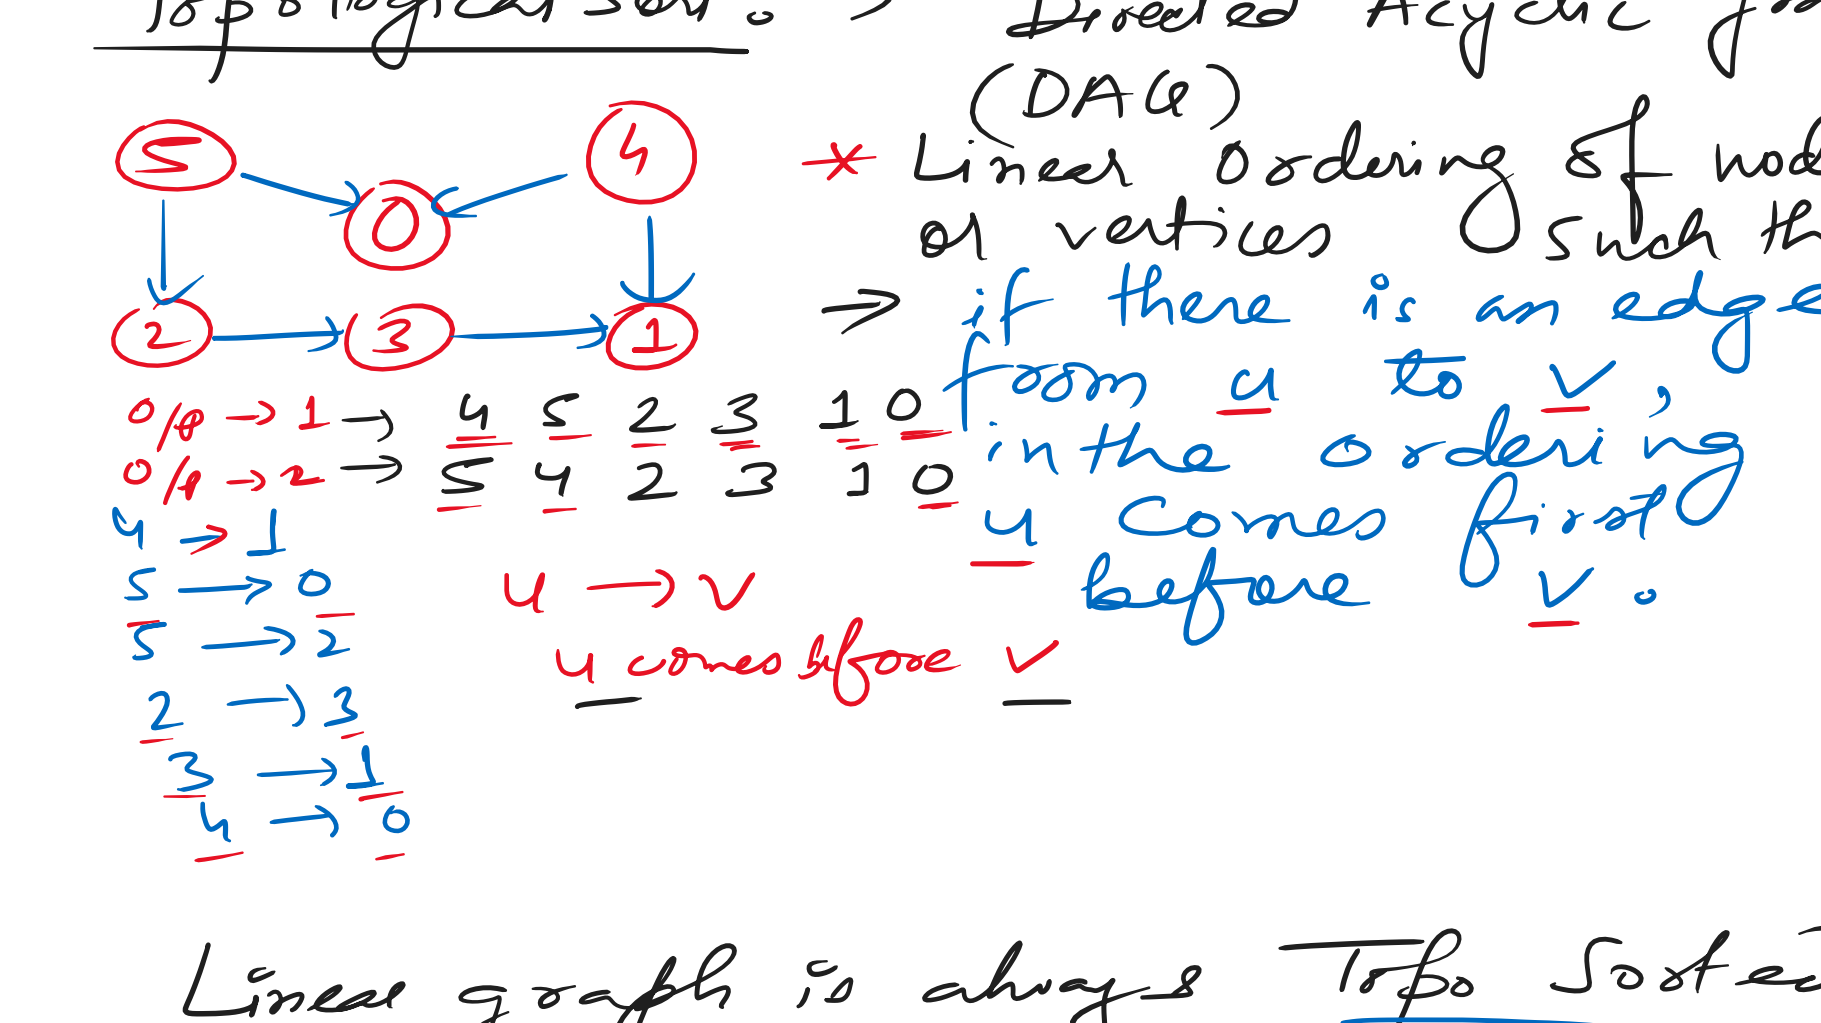 Topological Sort : → Directed Acyclic
(DAG)
5 4
0
2 3 1
* Linear Ordering of nod
or vertices such th
→ if there is an edge
from u to v,
in the ordering
u comes first
before v.
O/p → 1 → 4 5 2 3 1 0
O/p → 2 → 5 4 2 3 1 0
4 → 1
5 → 0
5 → 2
2 → 3
3 → 1
4 → 0
u → v
u comes before v
Linear graph is always Topo Sorted